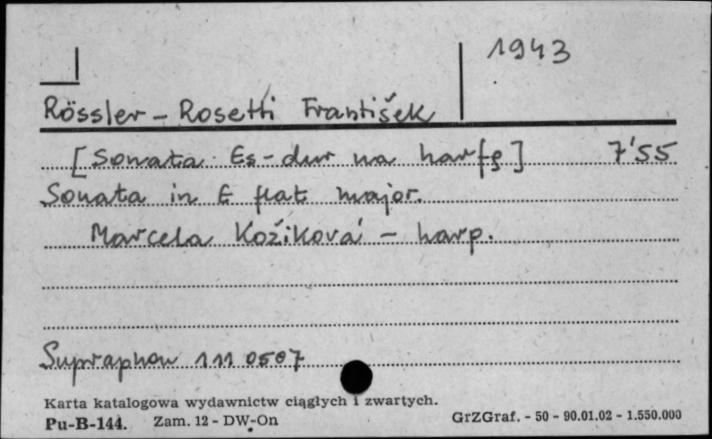 1943
Rössler - Rosetti František
[Sonata Es-dur na harfę] 7'55
Sonata in E flat major.
Marcela Kožíková - harp.
Supraphon 111 0507
Karta katalogowa wydawnictw ciągłych i zwartych.
Pu-B-144. Zam. 12 - DW-On GrZGraf. - 50 - 90.01.02 - 1.550.000